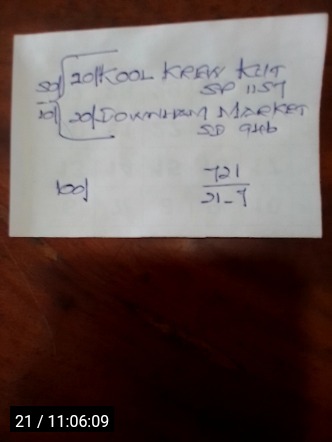 50/ 20/ KOOL KREW KUT
SP 1157
10/ 20/ DOWNHAM MARKET
SD 946
100/ 721
21-7
21 / 11:06:09